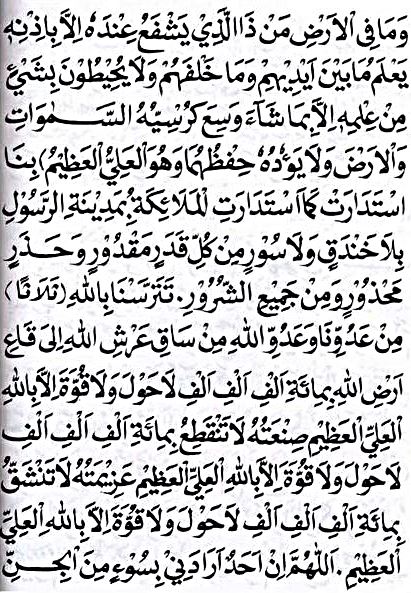 وَمَا فِى الْاَرْضِ مَنْ ذَا الَّذِيْ يَشْفَعُ عِنْدَهٗ اِلَّا بِاِذْنِهٖ
يَعْلَمُ مَا بَيْنَ اَيْدِيْهِمْ وَمَا خَلْفَهُمْ وَلَا يُحِيْطُوْنَ بِشَيْئٍ
مِنْ عِلْمِهٖ اِلَّا بِمَا شَآءَ وَسِعَ كُرْسِيُّهُ السَّمٰوَاتِ
وَالْاَرْضَ وَلَا يَؤُدُهٗ حِفْظُهُمَا وَهُوَ الْعَلِيُّ الْعَظِيْمُ) بِنَا
اسْتَدَارَتْ كَمَا اسْتَدَارَتِ الْمَلَائِكَةُ بِمَدِيْنَةِ الرَّسُوْلِ
بِلَا خَنْدَقٍ وَلَا سُوْرٍ مِنْ كُلِّ قَدَرٍ مَقْدُوْرٍ وَحَذَرٍ
مَحْذُوْرٍ وَمِنْ جَمِيْعِ الشُّرُوْرِ. تَتَرَّسْنَا بِاللهِ (ثَلَاثًا)
مِنْ عَدُوِّنَا وَعَدُوِّ اللهِ مِنْ سَاقِ عَرْشِ اللهِ اِلٰى قَاعِ
اَرْضِ اللهِ بِمِائَةِ اَلْفِ اَلْفِ اَلْفِ لَا حَوْلَ وَلَا قُوَّةَ اِلَّا بِاللهِ
الْعَلِيِّ الْعَظِيْمِ صِنْعَتُهٗ لَا تَنْقَطِعُ بِمِائَةِ اَلْفِ اَلْفِ اَلْفِ
لَا حَوْلَ وَلَا قُوَّةَ اِلَّا بِاللهِ الْعَلِيِّ الْعَظِيْمِ عَزِيْمَتُهٗ لَا تَنْشَقُّ
بِمِائَةِ اَلْفِ اَلْفِ اَلْفِ لَا حَوْلَ وَلَا قُوَّةَ اِلَّا بِاللهِ الْعَلِيِّ
الْعَظِيْمِ. اَللّٰهُمَّ اِنْ اَحَدٌ اَرَادَنِيْ بِسُوْءٍ مِنَ الْجِنِّ